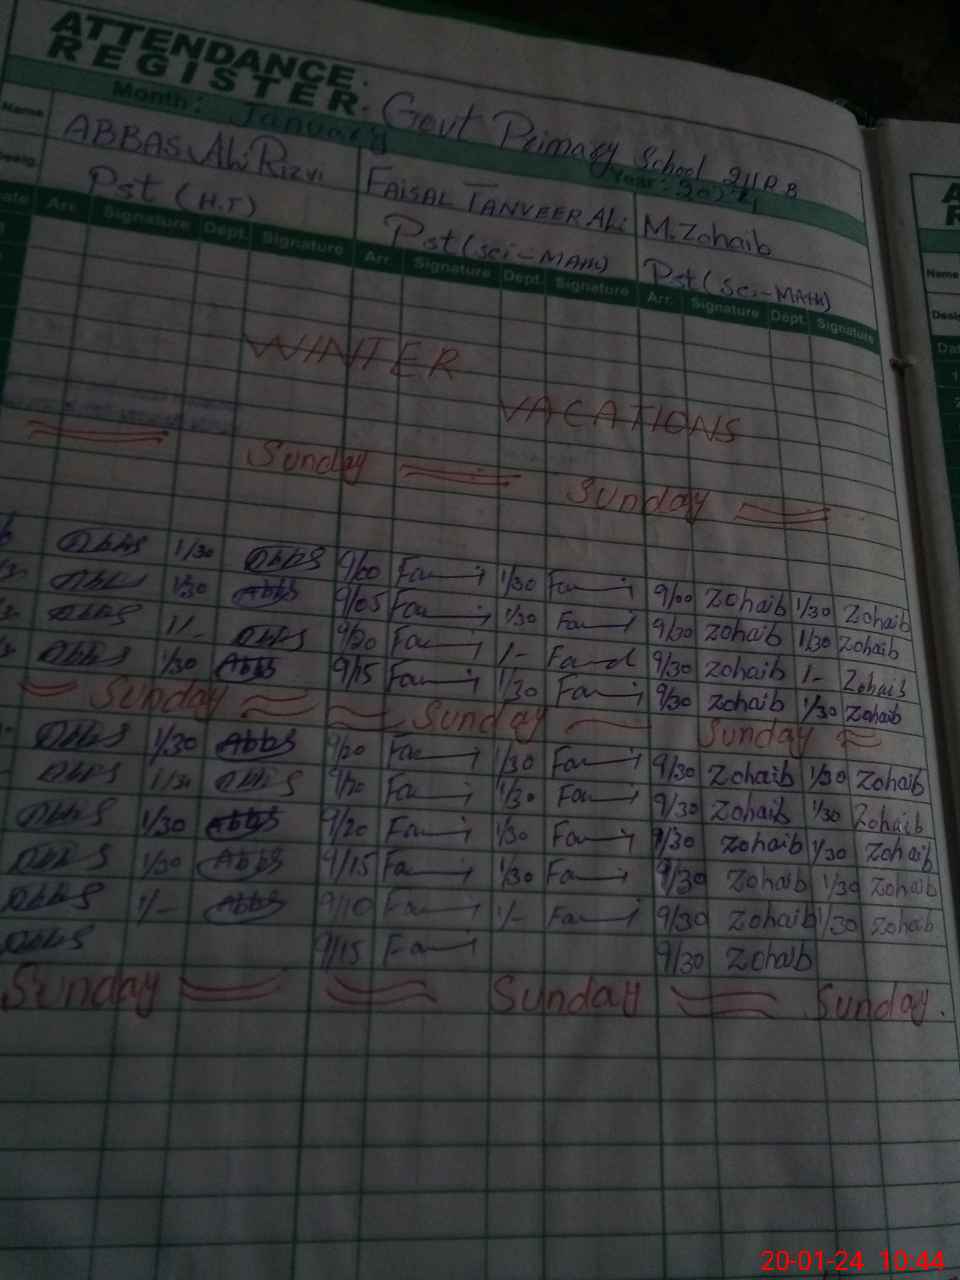 ATTENDANCE
REGISTER
Govt Primary School 211 R.B
Month: January Year: 2024
Name ABBAS Ali Rizvi FAISAL TANVEER Ali M. Zohaib
Desig. Pst (H.T) Pst (Sci-MATH) Pst (Sci-MATH)
Date Arr. Signature Dept. Signature Arr. Signature Dept. Signature Arr. Signature Dept. Signature
WINTER
VACATIONS
Sunday Sunday
Abbs 1/30 Abbs 9/00 1/30 9/00 Zohaib 1/30 Zohaib
Abbs 1/30 Abbs 9/05 1/30 9/30 Zohaib 1/30 Zohaib
Abbs 1/- Abbs 9/20 1/- 9/30 Zohaib 1/- Zohaib
Abbs 1/30 Abbs 9/15 1/30 9/30 Zohaib 1/30 Zohaib
Sunday Sunday Sunday
Abbs 1/30 Abbs 9/20 1/30 9/30 Zohaib 1/30 Zohaib
Abbs 1/30 Abbs 9/10 1/30 9/30 Zohaib 1/30 Zohaib
Abbs 1/30 Abbs 9/20 1/30 9/30 Zohaib 1/30 Zohaib
Abbs 1/30 Abbs 9/15 1/30 9/30 Zohaib 1/30 Zohaib
Abbs 1/- Abbs 9/10 1/- 9/30 Zohaib 1/30 Zohaib
Abbs 9/15 9/30 Zohaib
Sunday Sunday Sunday.
Name
20-01-24 10:44